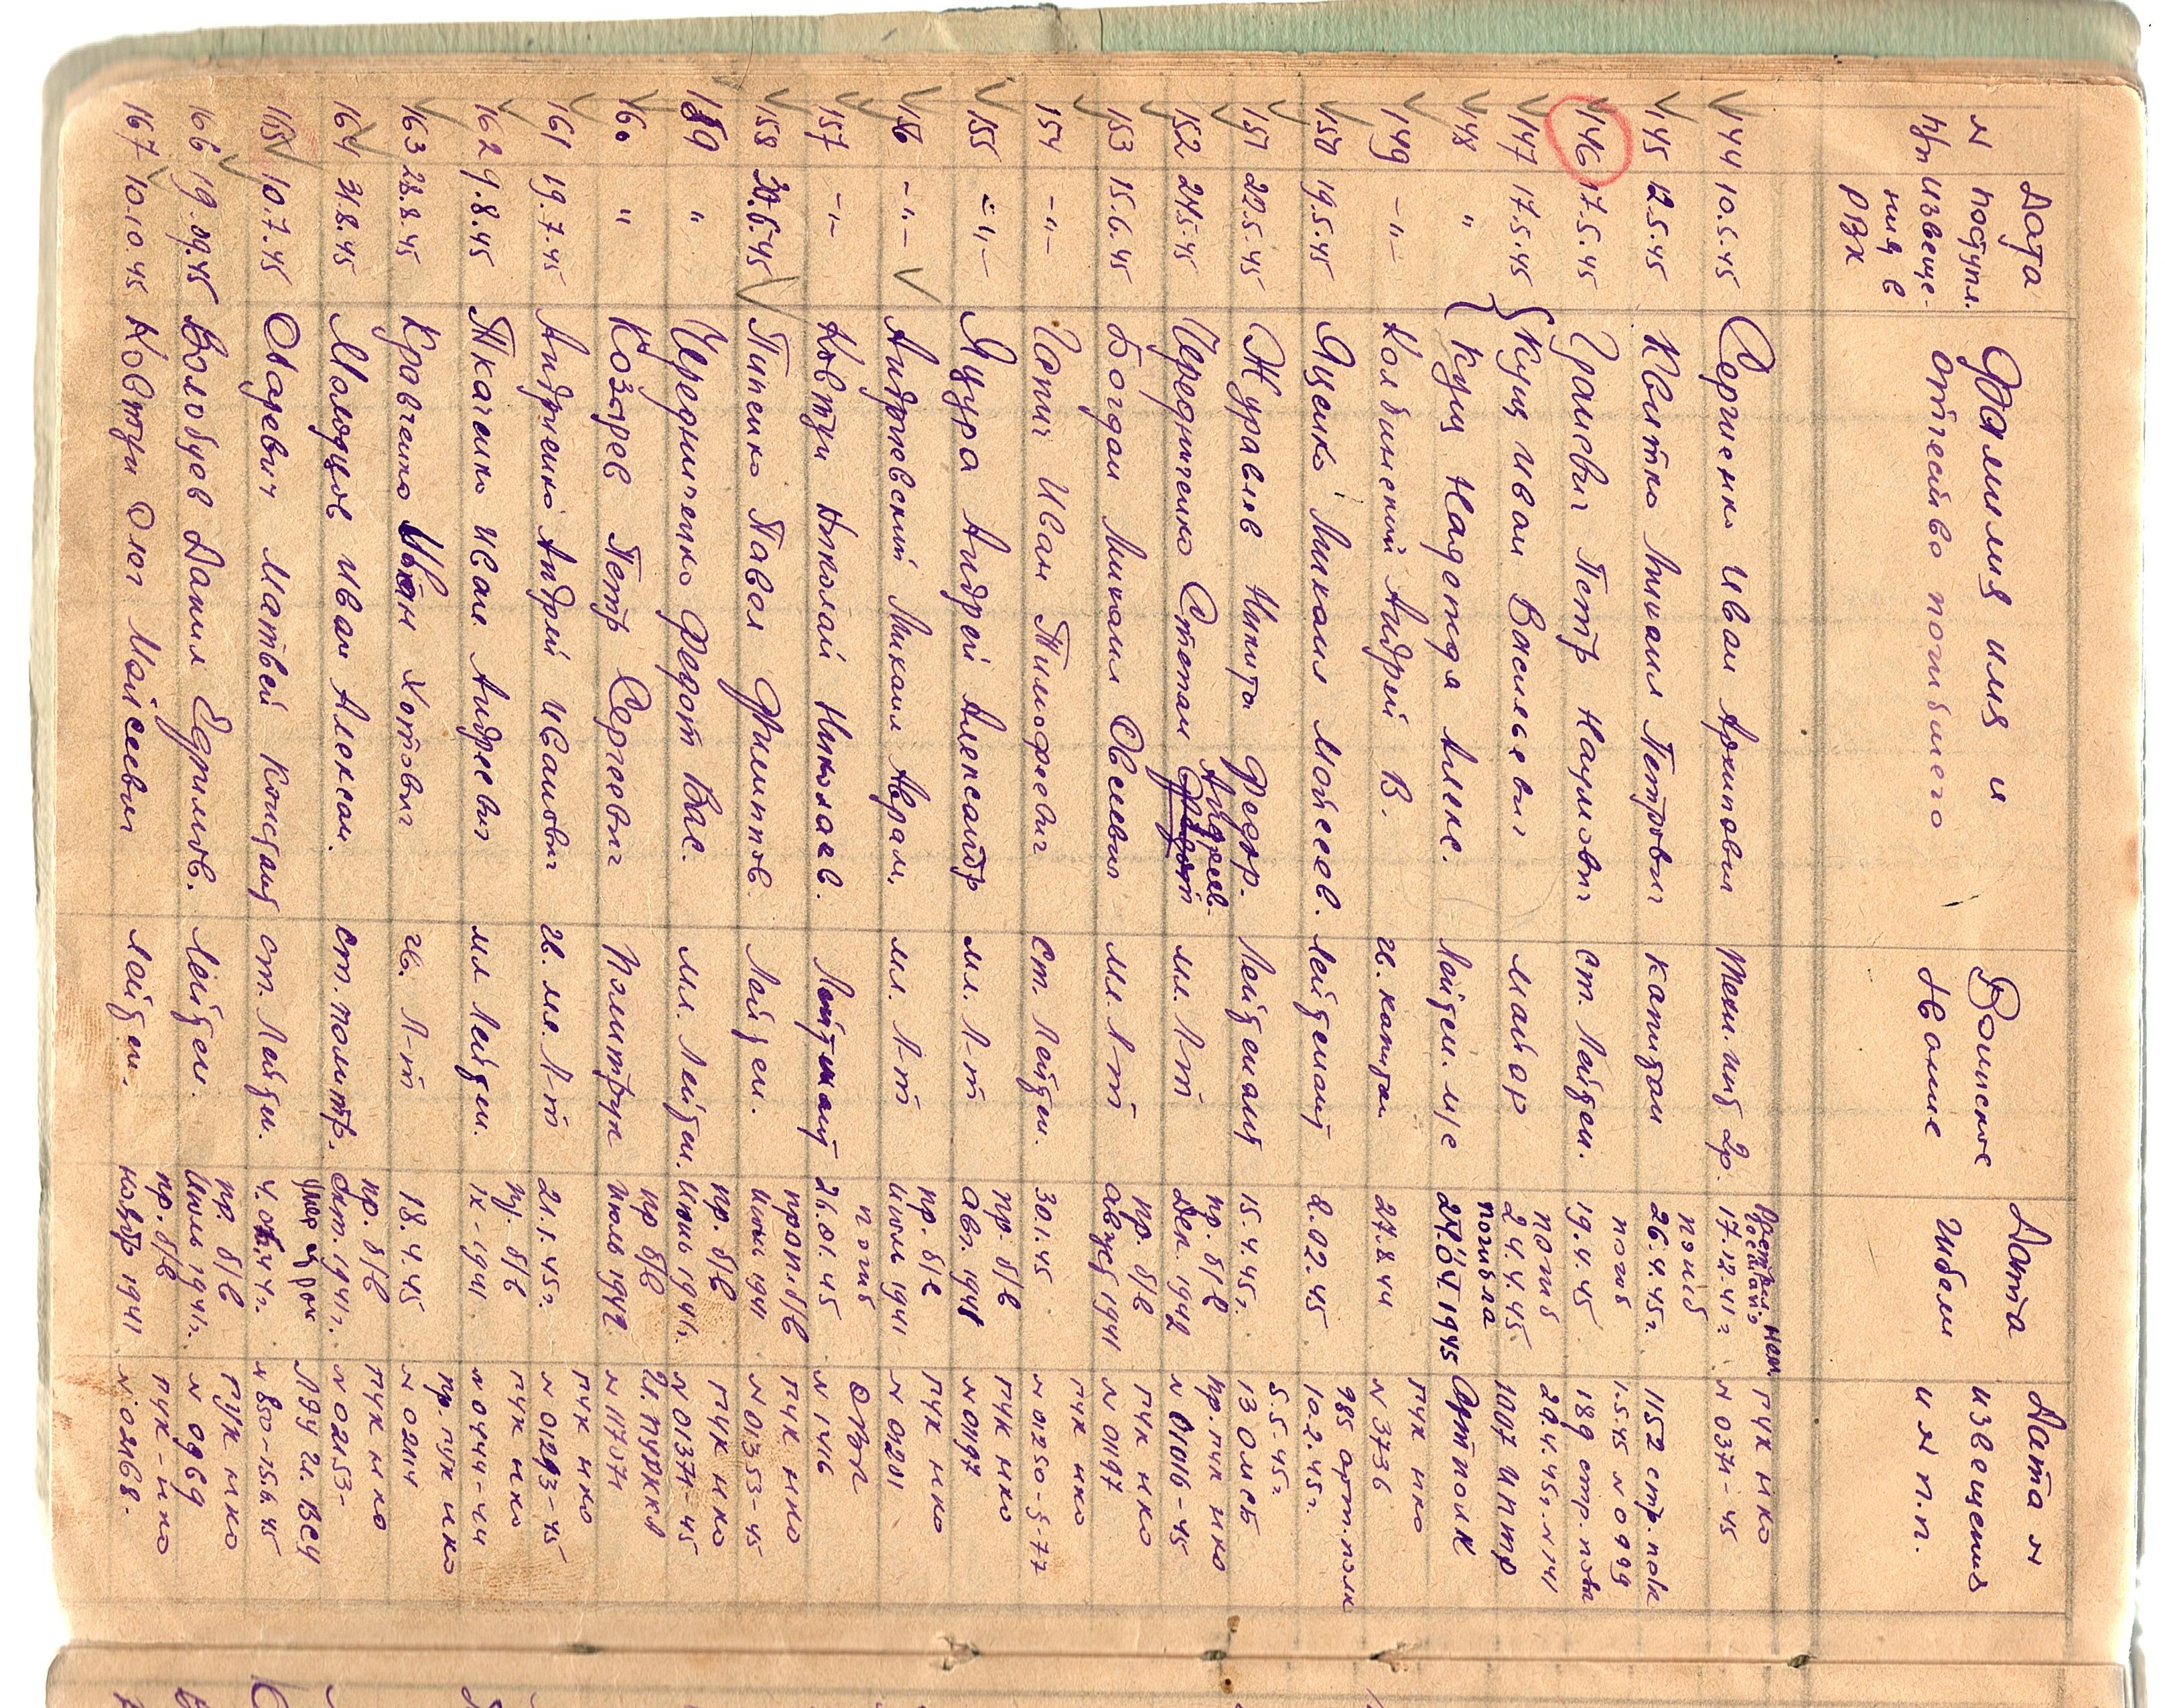 N п/п Дата поступл. извеще-ния в РВК Фамилия имя и отчество погибшего Воинское звание Дата гибели Дата и извещения и N п.п.
144 10.5.45 Сергиенко Иван Архипович Техн. инт 2р. 17.12.41 г. ГУК НКО N 0371-45
145 12.5.45 Квитко Михаил Петрович капитан погиб 26.4.45г. 1152 стр. полк 1.5.45 N 0999
146 17.5.45 Гралевич Петр Наумович ст. Лейтен. погиб 19.4.45 189 стр. полк
147 17.5.45 Куц Иван Васильевич майор погиб 24.4.45 20.4.45г. N 141 1007 ИПТР
148 " Куц Надежда Алекс. Лейтен. м/с погибла 24.04.1945 Арт полк
149 -"- Колбинский Андрей В. гв. капитан 27.8.44 ГУК НКО N 3736
150 19.5.45 Яценко Михаил Мойсеев. Лейтенант 8.02.45 985 арт. полк 10.2.45г.
151 22.5.45 Журавлев Никита Федор. Лейтенант 15.4.45г. 5.5.45г. 13 ОМСБ
152 24.5.45 Чередниченко Степан Андреев. мл. Л-т пр. б/в Дек. 1942 пр. ГУК НКО N 01016-45
153 15.6.45 Богдан Михаил Овсеевич мл. Л-т пр. б/в август 1941 ГУК НКО N 0197
154 -"- Истин Иван Тимофеевич ст. Лейтен. 30.1.45 ГУК НКО N 01250-
155 -"- Яцура Андрей Александр мл. Л-т пр. б/в авг. 1941 ГУК НКО N 0197
156 -"- Андриевский Михаил Абрам. мл. Л-т пр. б/в июль 1941 ГУК НКО N 0201
157 -"- Ковтун Николай Николаев. Лейтенант погиб 26.01.45 N 1416
158 30.6.45 Пипенко Павел Филиппов. Лейтен. проп. б/в июль 1941 ГУК НКО N 01353-45
159 " Чередниченко Федот Вас. мл. Лейтен. пр. б/в июнь 1941г. ГУК НКО N 01371-45
160 " Козарев Петр Сергеевич Политрук пр б/в июль 1942 N 117571
161 19.7.45 Андриенко Андрей Иванович гв. мл. Л-т 21.1.45г. ГУК НКО N 01293-45
162 9.8.45 Ткаченко Иван Андреевич мл Лейтен. пр. б/в IX-1941 ГУК НКО N 0444-44
163 28.8.45 Кравченко Иван Хотович гв. Л-т 18.4.45 пр. ГУК НКО N 02114
164 31.8.45 Молодцов Иван Алексан. ст. политр. пр. б/в Окт. 1941г. ГУК НКО N 02153-
165 10.7.45 Матвей Констант ст. Лейтен. умер от ран 4.04.44г. N 850-15.6.45
166 19.09.45 Волобуев Данил Ефримов. Лейтен. пр. б/в Июль 1941г. ГУК НКО N 0969
167 10.10.45 Ковтун Олег Мойсеевич лейтен. пр. б/в ноябр 1941 ГУК-НКО N 02168.